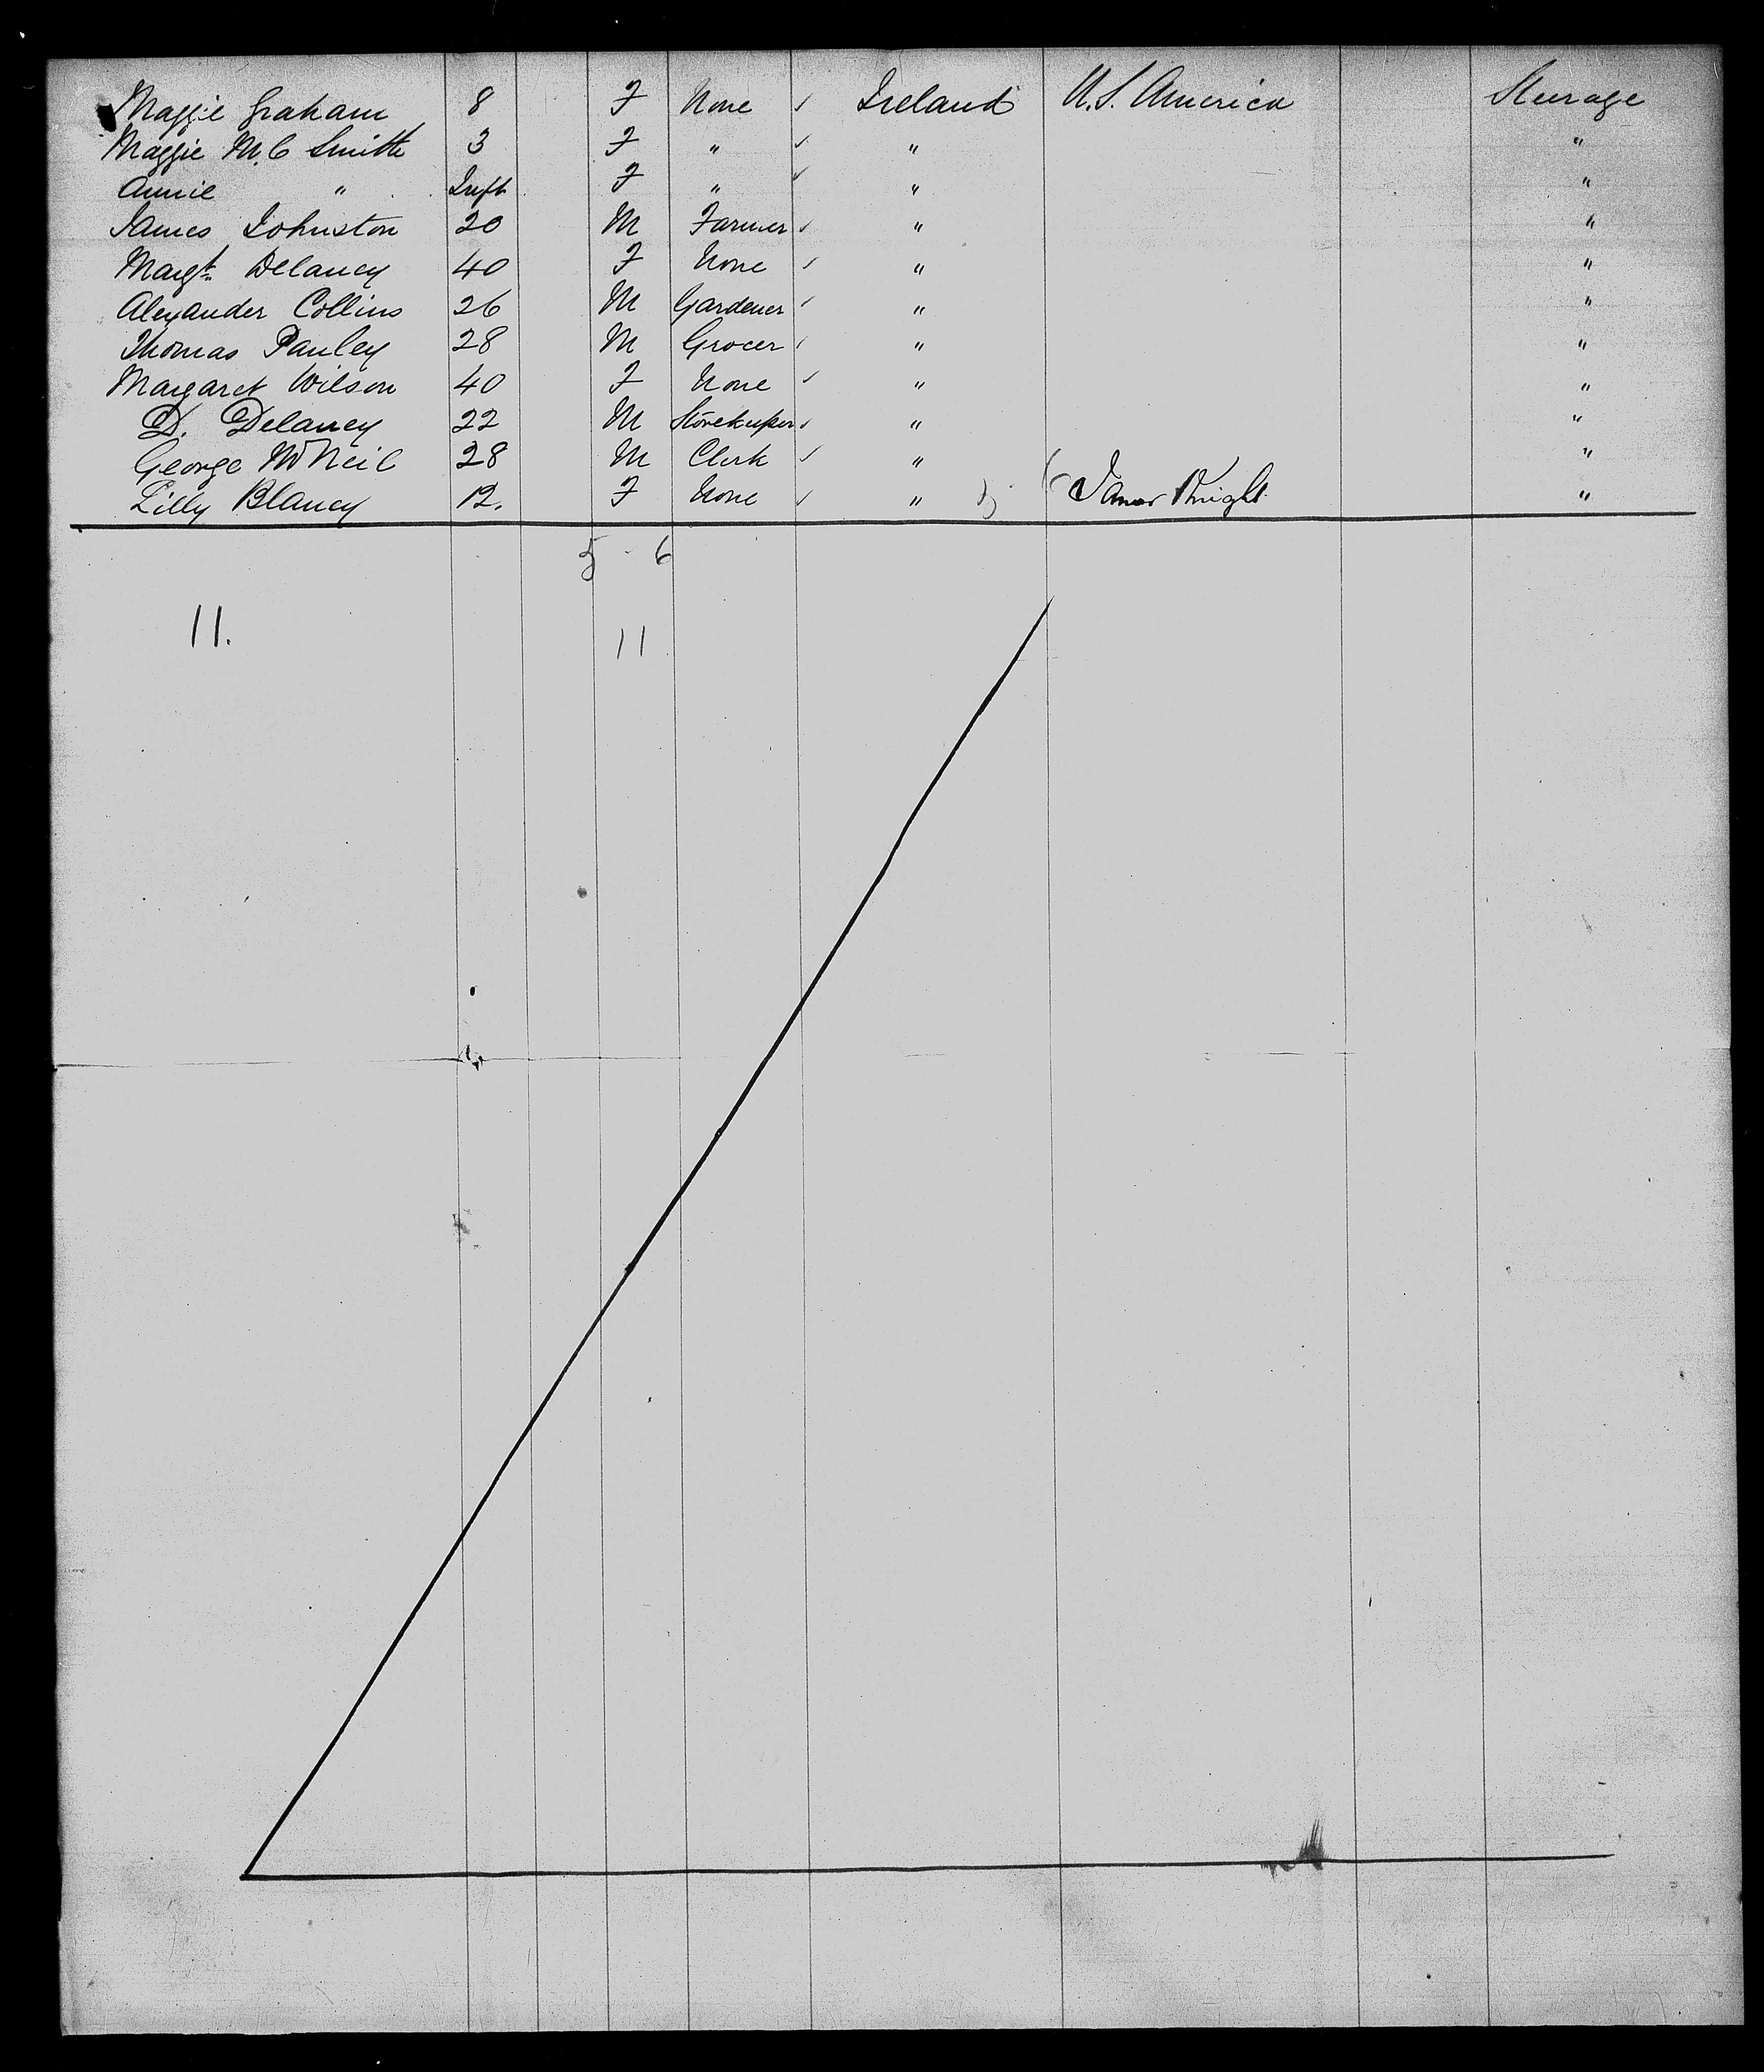 Maggie Graham 8 F None ✓ Ireland U.S. America Steerage
Maggie M.C Smith 3 F " ✓ " "
Annie " Inft F " ✓ " "
James Johnston 20 M Farmer ✓ " "
Margt. Delaney 40 F None ✓ " "
Alexander Collins 26 M Gardener ✓ " "
Thomas Pauley 28 M Grocer ✓ " "
Margaret Wilson 40 F None ✓ " "
D. Delaney 22 M Storekeeper ✓ " "
George McNeil 28 M Clerk ✓ " "
Lilly Blaney 12. F None ✓ " James Knight "
5 - 6
11. 11